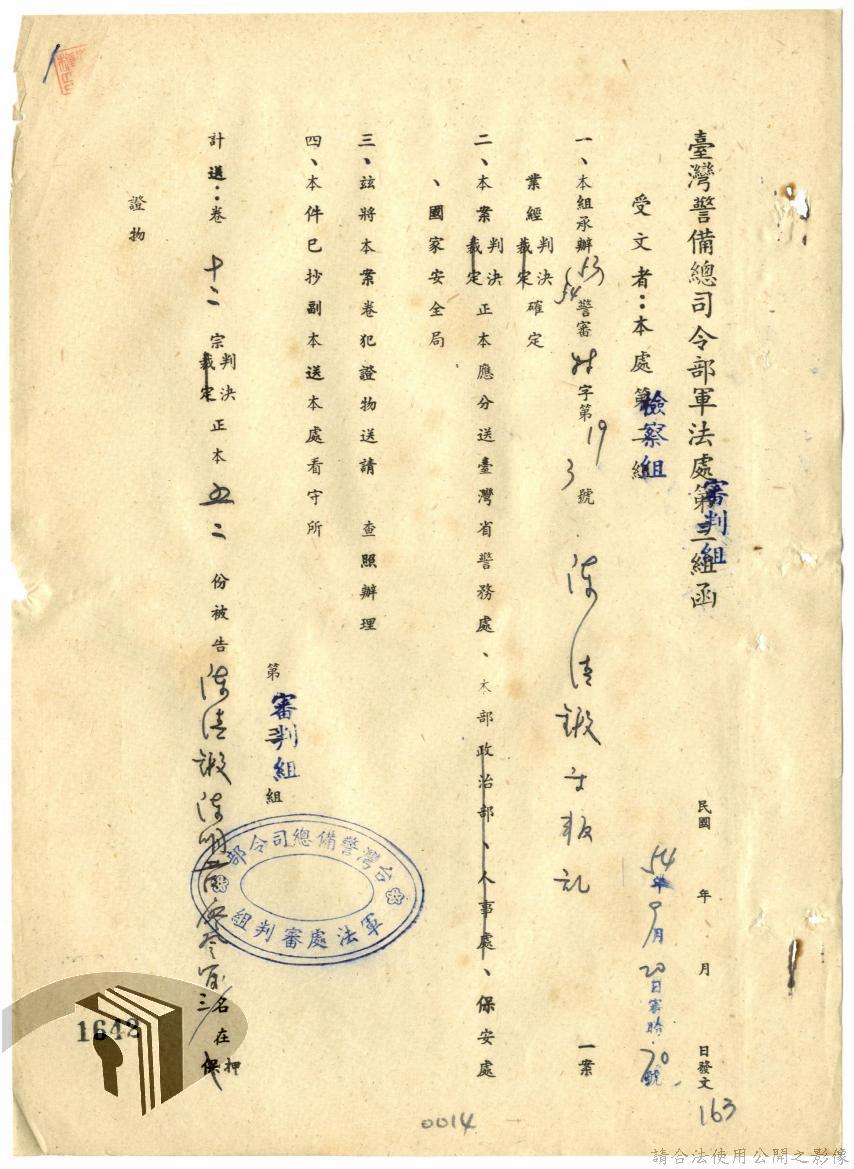 臺灣警備總司令部軍法處第二組函
審判組
受文者：本處第一組
檢察組
民國 年 月 日發文
54年9月20日審 70號
163
一、本組承辦 53 54 警審 字第 19 3 號 陳 一案
業經 判決 裁定 確定
二、本案 判決 裁定 正本應分送臺灣省警務處、本部政治部、人事處、保安處
、國家安全局
三、玆將本案卷犯證物送請 查照辦理
四、本件已抄副本送本處看守所
第 組
審判組
台灣警備總司令部
軍法處審判組
計送：卷 十二 宗 判決 裁定 正本 二 份被告 陳 陳明 三名在 押 保
證物
1642
0014
請合法使用公開之影像